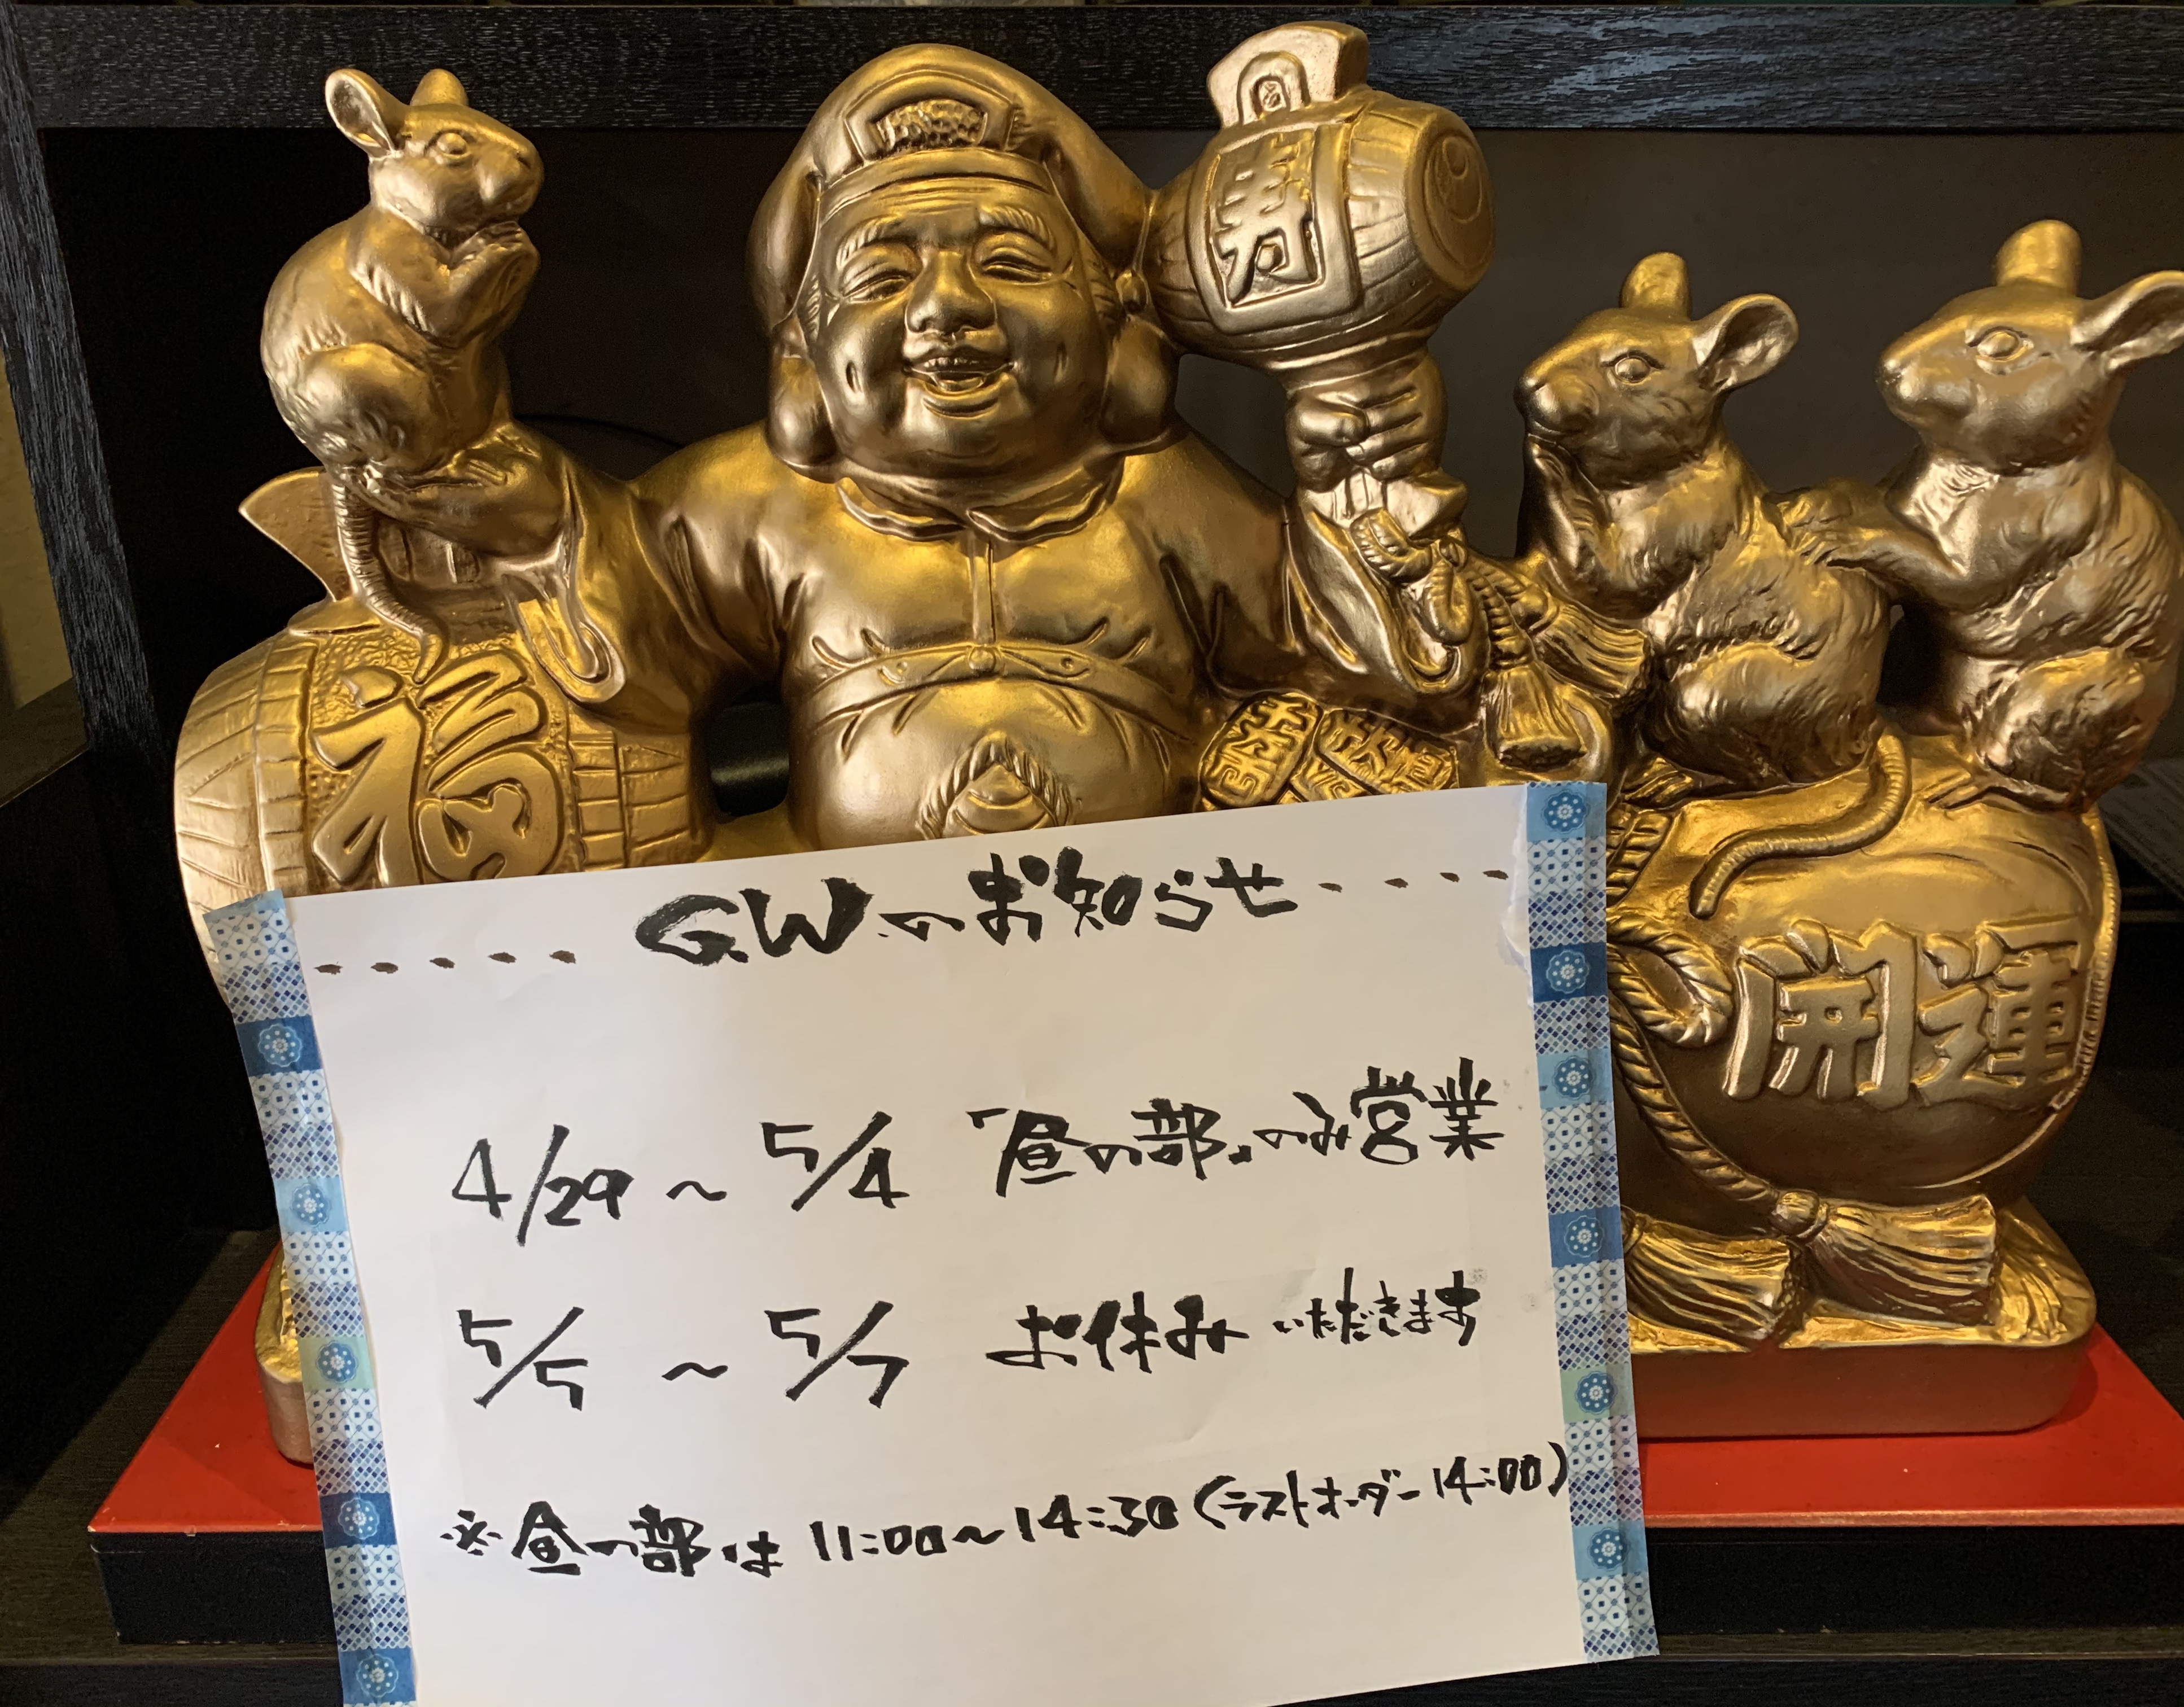 寿
福
開運
GWのお知らせ
4/29 〜 5/4 「昼の部」のみ営業
5/5 〜 5/7 お休みいただきます
※昼の部は 11:00〜14:30 (ラストオーダー 14:00)